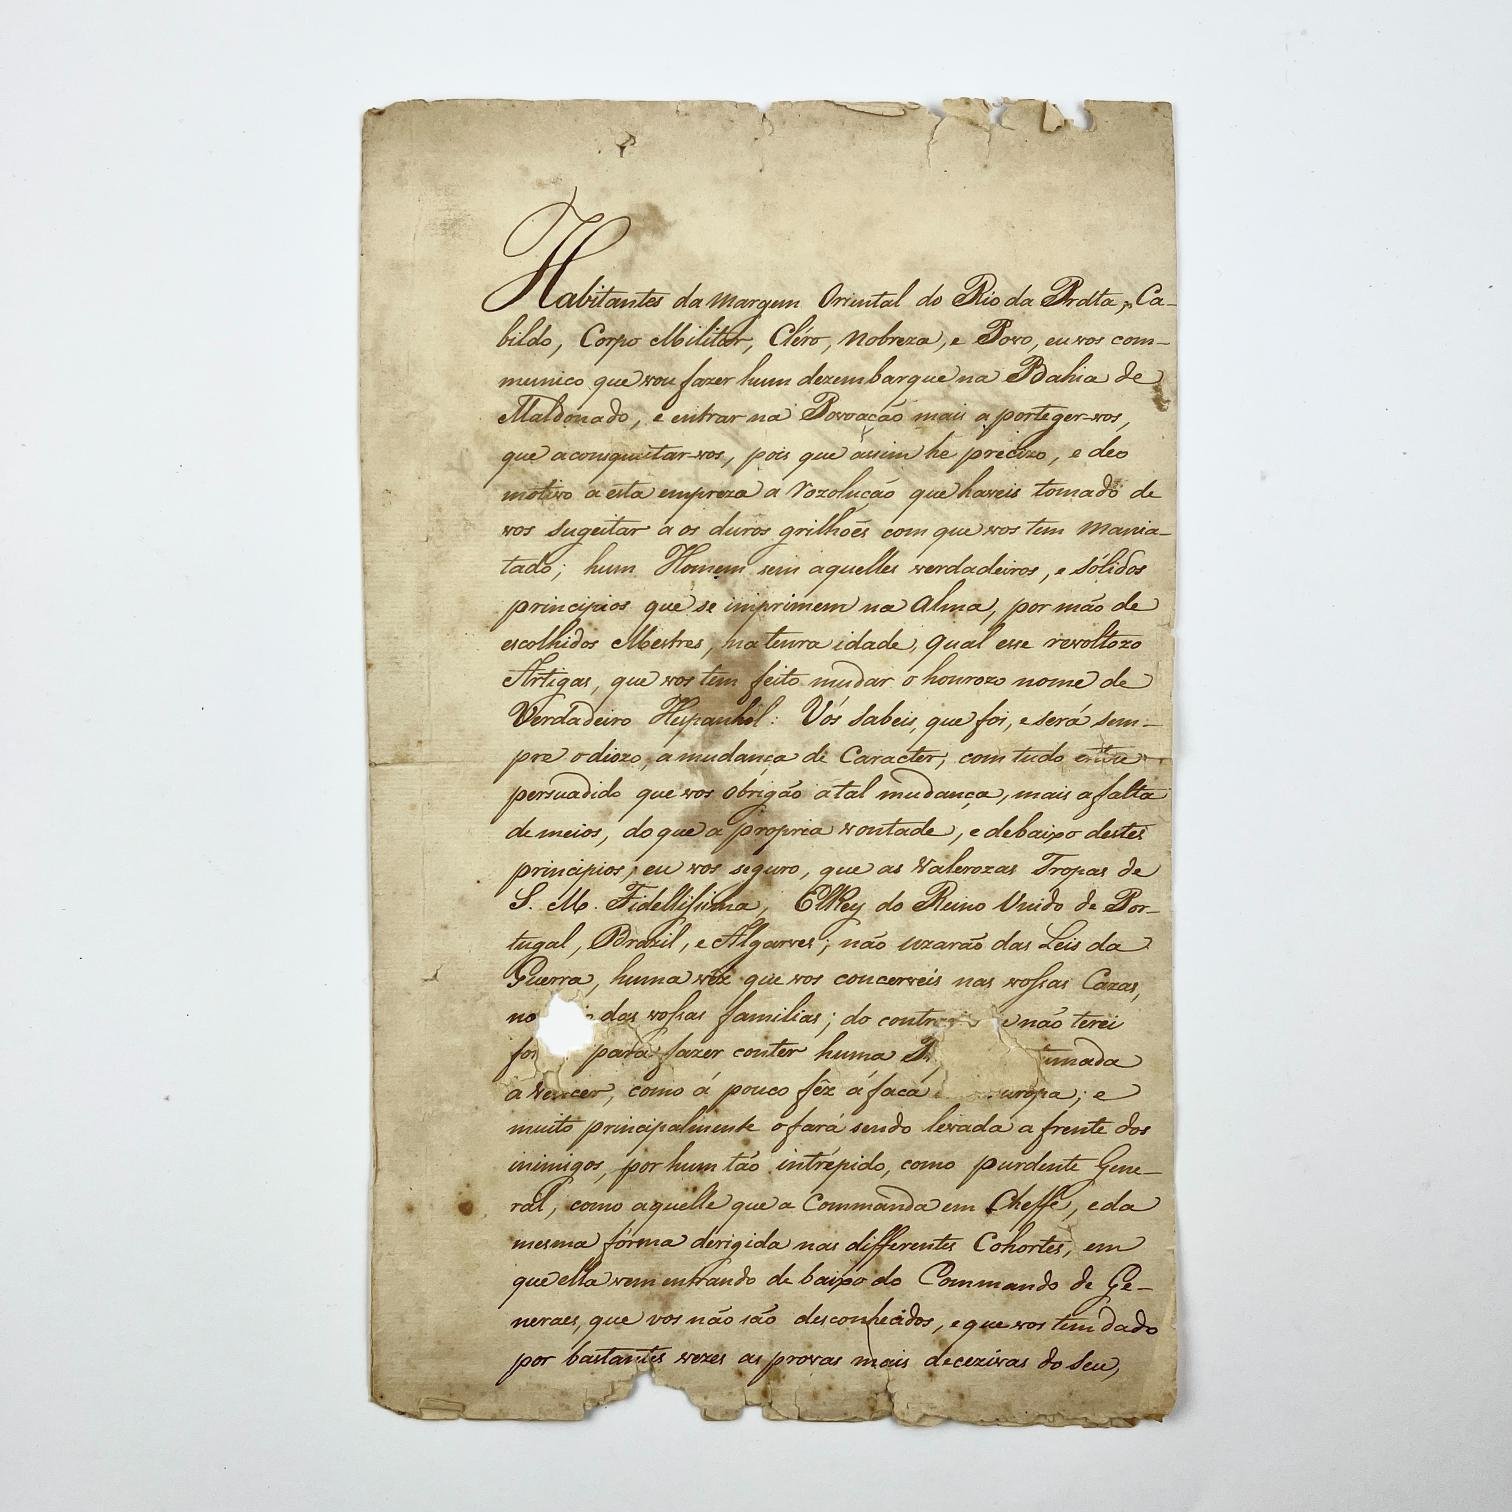 Habitantes da margem Oriental do Rio da Pratta, Ca-
bildo, Corpo Militar, Cléro, Nobreza, e Povo, eu vos com-
munico que vou fazer hum dezembarque na Bahia de
Maldonado, e entrar na Povoação mais a porteger-vos,
que a consquistar-vos, pois que assim hé precizo, e deo
motivo a esta empreza a rozolução que haveis tomado de
vos sugeitar a os duros grilhoẽs com que vos tem mania-
tado; hum Homem sem aquelles verdadeiros, e sólidos
principios que se imprimem na Alma, por mão de
escolhidos Mestres, na tenra idade, qual esse revoltozo
Artigas, que vos tem feito mudar o honrozo nome de
Verdadeiro Hespanhól: Vós sabeis, que foi, e será sem-
pre odiozo, a mudança de Caracter, com tudo
persuadido que vos obrigão a tal mudança, mais a falta
de meios, do que a propria vontade, e debaixo destes
principios, eu vos seguro, que as valerozas Tropas de
S. M. Fidellissima, ElRey do Reino Unido de Por-
tugal, Brazil, e Algarves; não uzarão das Leis da
Guerra, huma vêz que vos concerveis nas vossas Cazas,
no das vossas familias; do não terei
para fazer conter huma
a vencer, como á pouco fêz á faca e
muito principalmente o fará sendo levada a frente dos
inimigos, por hum tão intrépido, como purdente Gene-
ral, como aquelle que a Commanda em Cheffe, e da
mesma fórma derigida nas differentes Cohortes, em
que ella vem entrando de baixo do Commando de Ge-
neraes, que vos não são desconhecidos, e que vos tem dado
por bastantes vezes as provas mais decezivas do seu,